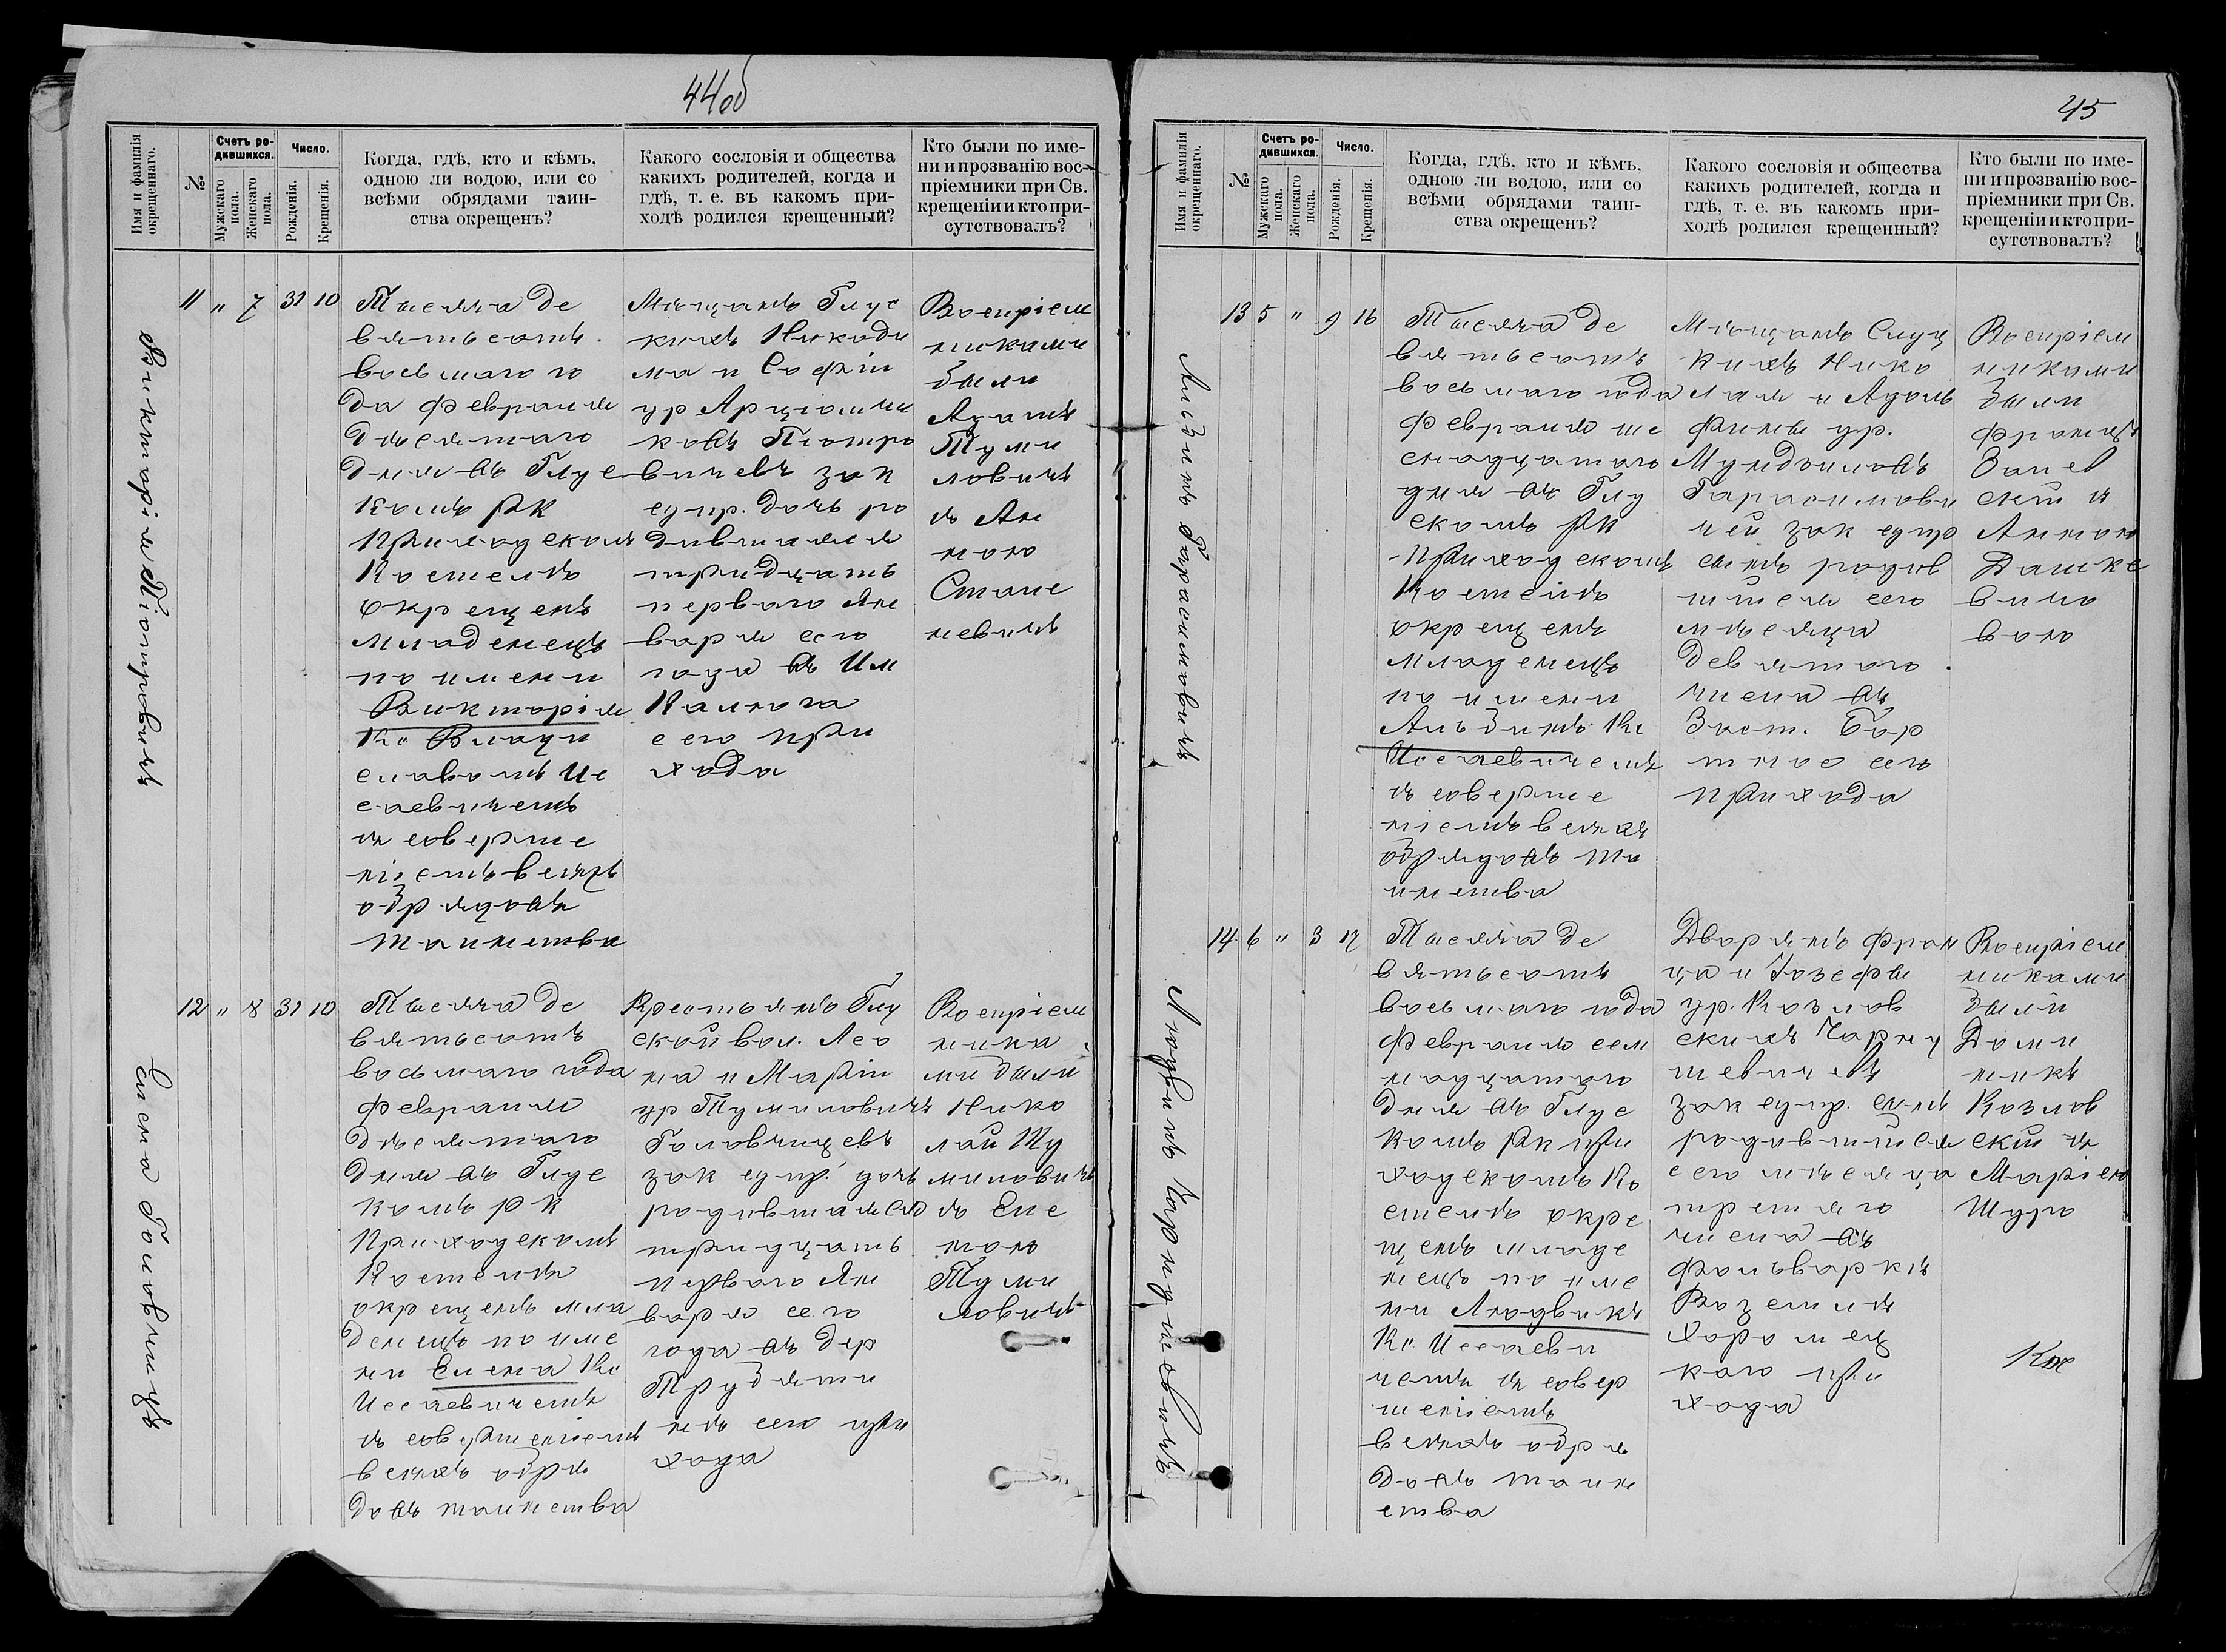 44об
Имя и фамилія
окрещеннаго.
№
Счетъ ро-
дившихся.
Мужскаго
пола.
Женскаго
пола.
Число.
Рожденія.
Крещенія.
Когда, гдѣ, кто и кѣмъ,
одною ли водою, или со
всѣми обрядами таин-
ства окрещенъ?
Какого сословія и общества
какихъ родителей, когда и
гдѣ, т. е. въ какомъ при-
ходѣ родился крещенный?
Кто были по име-
ни и прозванію вос-
пріемники при Св.
крещеніи и кто при-
сутствовалъ?
Викторія Піотровичъ
11 " 7 31 10
Тысяча де
вятьсотъ
восьмаго го
да февраля
десятаго
дня въ Глус
комъ рк
приходскомъ
костелѣ
окрещенъ
младенецъ
по имени
Викторія
Кс Влади
славомъ Ис
саевичемъ
съ соверше
ніемъ всѣхъ
обрядовъ
таинства
Мѣщанъ Глус
кихъ Никоди
ма и Софіи
ур Арціомчи
ковъ Піотро
вичевъ зак
супр. дочь ро
дившаяся
тридцать
перваго Ян
варя сего
года въ Им
Калюга
сего при
хода
Воспріем
никами
были
Адамъ
Туми
ловичъ
съ Ан
ною
Стане
невичъ
Елена Головчицъ
12 " 8 31 10
Тысяча де
вятьсотъ
восьмаго года
февраля
десятаго
дня въ Глус
комъ р к
приходскомъ
костелѣ
окрещенъ мла
денецъ по име
ни Елена Кс
Иссаевичемъ
съ совершеніемъ
всѣхъ обря
довъ таинства
Крестьянъ Глу
ской вол. Лео
на и Маріи
ур Тумиловичъ
Головчицевъ
зак супр. дочь
родившаяся
тридцать
перваго Ян
варя сего
года въ дер
Трубяти
нѣ сего при
хода
Воспріем
ника
ми были
Нико
лай Ту
миловичъ
съ Еле
ною
Туми
ловичъ
45
Имя и фамилія
окрещеннаго.
№
Счетъ ро-
дившихся.
Мужскаго
пола.
Женскаго
пола.
Число.
Рожденія.
Крещенія.
Когда, гдѣ, кто и кѣмъ,
одною ли водою, или со
всѣми обрядами таин-
ства окрещенъ?
Какого сословія и общества
какихъ родителей, когда и
гдѣ, т. е. въ какомъ при-
ходѣ родился крещенный?
Кто были по име-
ни и прозванію вос-
пріемники при Св.
крещеніи и кто при-
сутствовалъ?
Альбинъ Гарасимовичъ
13 5 " 9 16
Тысяча де
вятьсотъ
восьмаго года
февраля ше
снадцатаго
дня въ Глу
скомъ рк
приходскомъ
костелѣ
окрещенъ
младенецъ
по имени
Альбинъ Кс
Иссаевичемъ
съ соверше
ніемъ всѣхъ
обрядовъ та
инства
Мѣщанъ Слуц
кихъ Нико
лая и Адоль
фины ур.
Мундзиловъ
Гарасимови
чей зак супр
сынъ родив
шійся сего
мѣсяца
девятаго
числа въ
Заст. Бор
тное сего
прихода
Воспріем
никами
были
Францъ
Зънев
скій и
Антон
Дашке
вичо
вою
Людвикъ Чарнушевичъ
14 6 " 3 17
Тысяча де
вятьсотъ
восьмаго года
февраля сем
надцатаго
дня въ Глус
комъ рк при
ходскомъ ко
стелѣ окре
щенъ младе
нецъ по име
ни Людвикъ
Кс. Иссаеви
чемъ съ совер
шеніемъ
всѣхъ обря
довъ таин
ства
Дворянъ Фран
ца и Юзефы
ур. Козлов
скихъ Чарну
шевичевъ
зак супр. сынъ
родившійся
сего мѣсяца
третяго
числа въ
фольваркѣ
Воземля
Хоромец
каго при
хода
Воспріем
никами
были
Доми
никъ
Козлов
скій съ
Маріею
Щуро